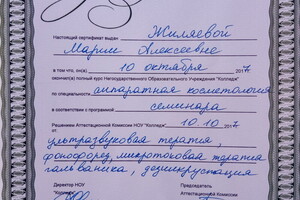 Настоящий сертификат выдан Жиляевой
Марине Алексеевне
в том, что он(а) 10 октября 2017г.
окончил(а) полный курс Негосударственного Образовательного Учреждения "Колледж"
по специальности аппаратная косметология
в соответствии с программой
семинара
Решением Аттестационной Комиссии НОУ "Колледж" 10.10 2017г.
ультразвуковая терапия,
фонофорез, микротоковая терапия
гальваника, дезинкрустация
Директор НОУ
Председатель
Аттестационной Комиссии